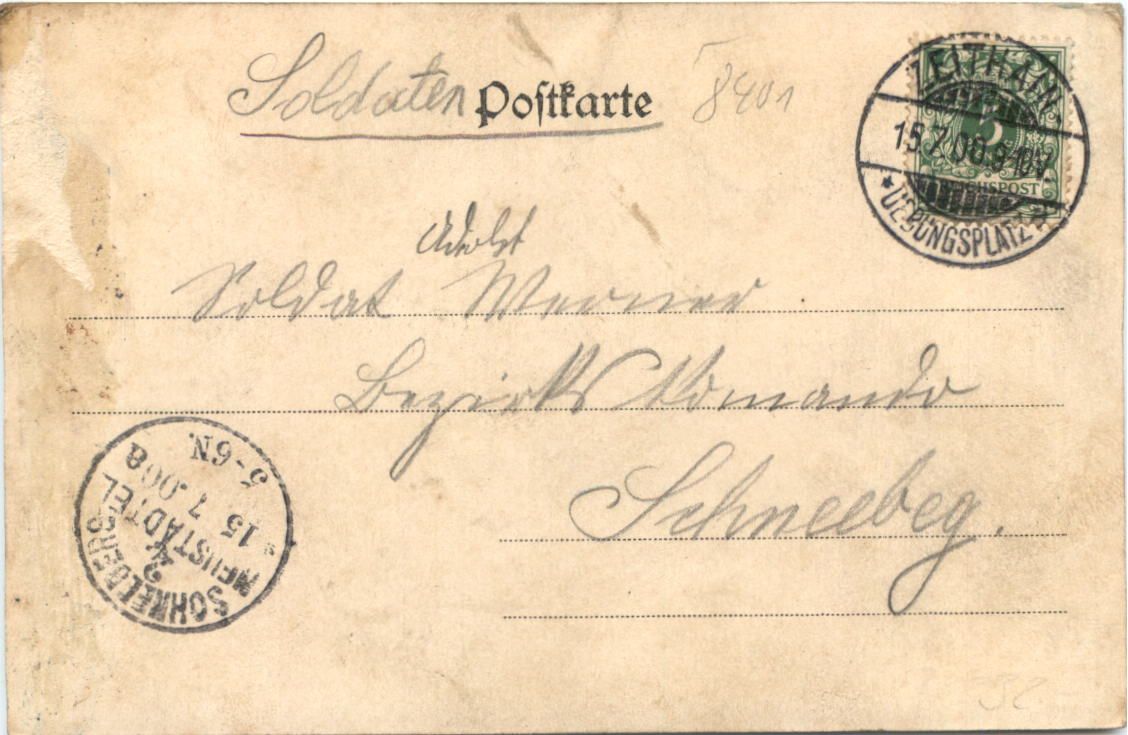 Soldaten Postkarte
8401
ZEITHAIN
5
15.7.00.9-10V.
REICHSPOST
* UEBUNGSPLATZ *
Adolf
Soldat Werner
Bezirks Komando
Schneebeg.
SCHNEEBERG-
NEUSTÄDTEL
15 7.00 8
5-6N.